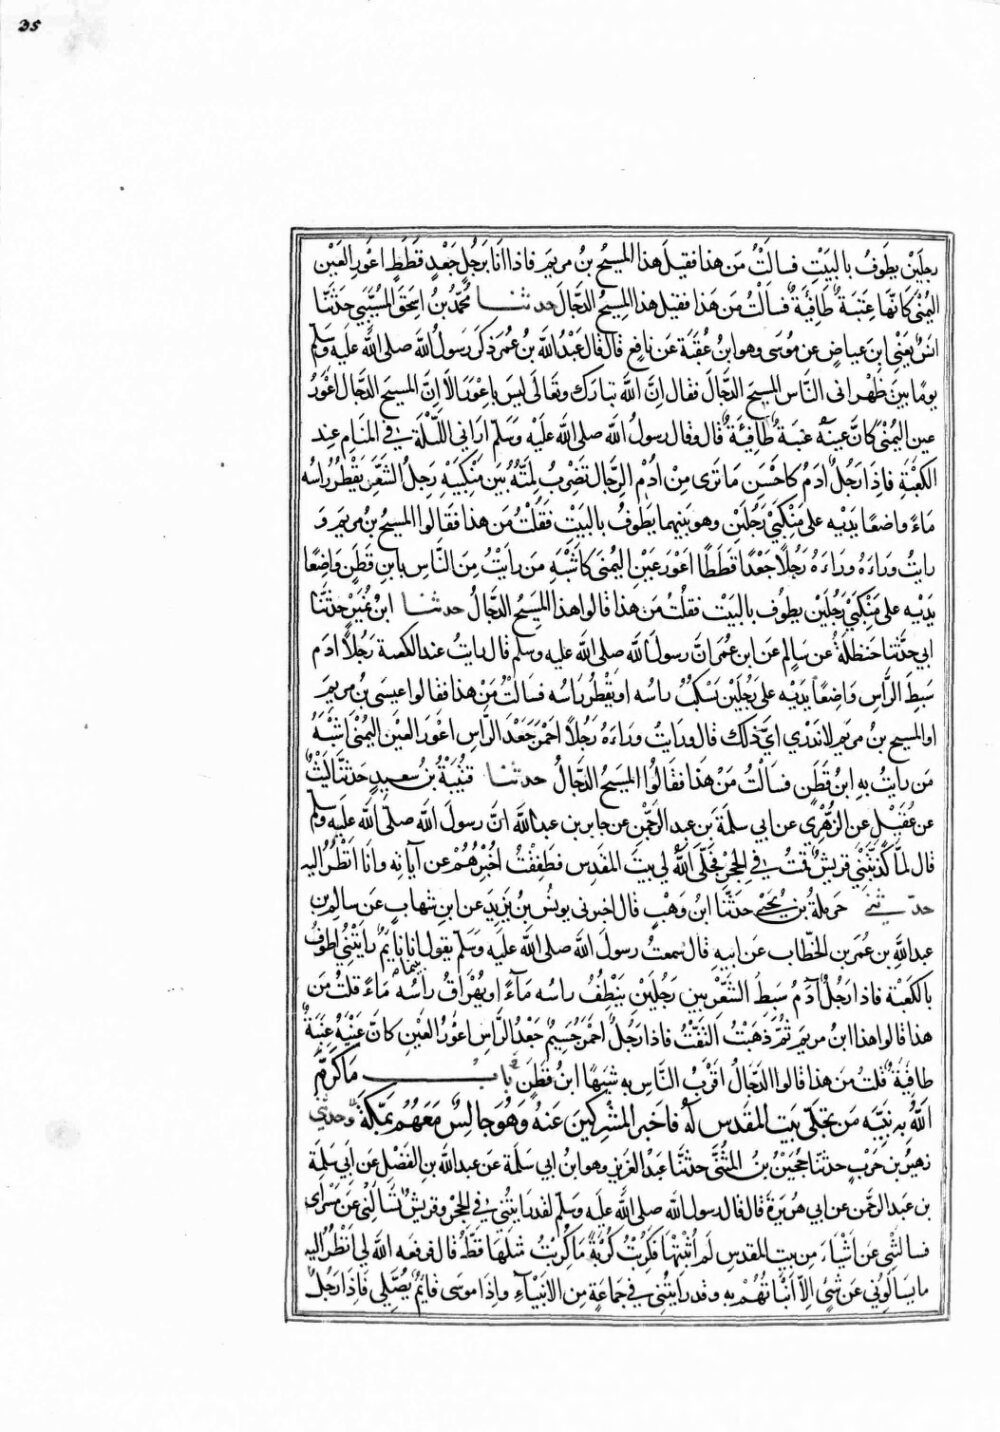 35
رجلين يطوف بالبيت فسألت من هذا فقيل هذا المسيح بن مريم فاذا انا برجل جعد قطط اعور العين
اليمنى كانها عنبة طافية فسألت من هذا فقيل هذا المسيح الدجال حدثنا محمد بن اسحق المسيبي حدثنا
انس يعنى ابن عياض عن موسى وهو ابن عقبة عن نافع قال قال عبد الله بن عمر ذكر رسول الله صلى الله عليه وسلم
يوما بين ظهرانى الناس المسيح الدجال فقال ان الله تبارك وتعالى ليس باعور الا ان المسيح الدجال اعور
عين اليمنى كان عينه عنبة طافية قال وقال رسول الله صلى الله عليه وسلم ارانى الليلة في المنام عند
الكعبة فاذا رجل ادم كاحسن ما ترى من ادم الرجال تضرب لمته بين منكبيه رجل الشعر يقطر راسه
ماء واضعا يديه على منكبي رجلين وهو بينهما يطوف بالبيت فقلت من هذا فقالوا المسيح بن مريم و
رايت وراءه وراءه رجلا جعدا قططا اعور عين اليمنى كاشبه من رأيت من الناس بابن قطن واضعا
يديه على منكبي رجلين يطوف بالبيت فقلت من هذا قالوا هذا المسيح الدجال حدثنا ابن نمير حدثنا
ابي حدثنا حنظلة عن سالم عن ابن عمر ان رسول الله صلى الله عليه وسلم قال رايت عند الكعبة رجلا ادم
سبط الراس واضعا يديه على رجلين يسكب راسه او يقطر راسه فسالت من هذا فقالوا عيسى بن مريم
او المسيح بن مريم لا ندري اي ذلك قال ورايت وراءه رجلا احمر جعد الراس اعور العين اليمنى اشبه
من رايت به ابن قطن فسالت من هذا فقالوا المسيح الدجال حدثنا قتيبة بن سعيد حدثنا ليث
عن عقيل عن الزهري عن ابي سلمة بن عبد الرحمن عن جابر بن عبد الله ان رسول الله صلى الله عليه وسلم
قال لما كذبتني قريش قمت في الحجر فجلى الله لي بيت المقدس فطفقت اخبرهم عن آياته وانا انظر اليه
حدثني حرملة بن يحيى حدثنا ابن وهب قال اخبرني يونس بن يزيد عن ابن شهاب عن سالم بن
عبد الله بن عمر بن الخطاب عن ابيه قال سمعت رسول الله صلى الله عليه وسلم يقول بينما انا نايم رايتني اطوف
بالكعبة فاذا رجل آدم سبط الشعر بين رجلين ينطف راسه مآء او يهراق راسه ماء قلت من
هذا قالوا هذا ابن مريم ثم ذهبت التفت فاذا رجل احمر جسيم جعد الراس اعور العين كان عينه عنبة
طافية قلت من هذا قالوا الدجال اقرب الناس به شبها ابن قطن باب ما كرم
الله به نبيه من تجلى بيت المقدس له فاخبر المشركين عنه وهو جالس معهم بمكة وحدثني
زهير بن حرب حدثنا حجين بن المثنى حدثنا عبد العزيز وهو ابن ابي سلمة عن عبد الله بن الفضل عن ابي سلمة
بن عبد الرحمن عن ابي هريرة قال قال رسول الله صلى الله عليه وسلم لقد رايتني في الحجر وقريش تسألني عن مسراى
فسالتني عن اشياء من بيت المقدس لم اثبتها فكربت كربة ما كربت مثلها قط قال فرفعه الله لي انظر اليه
ما يسالوني عن شئ الا انبأتهم به وقد رايتني في جماعة من الانبيآء واذا موسى قايم يصلي فاذا رجل